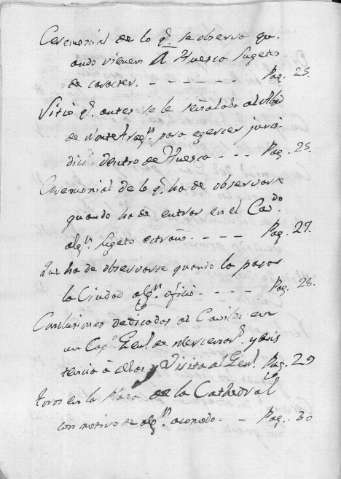 Ceremonial de lo q.e se observa qu-
ando vienen á Huesca Sugetos
de caracter. - - - - - - - Pag. 23.
Sitio q.e antes se le señalaba al Abad
de Monte Arag.n para egercer juris
dic.n dentro de Huesca - - - Pag. 25.
Ceremonial de lo q.e ha de observarse
quando ha de entrar en el Ca.do
alg.n Sugeto estraño. - - - - Pag. 27.
Que ha de observarse quando lo pasa
la Ciudad alg.n oficio. - - - - Pag. 28.
Conclusiones dedicadas al Cavildo en
un Cap.o Gen.l de Mercenar.s y asis
tencia á ellas y Visita al Gen.l Pag. 29
toros en la Plaza de la Cathedral
con motivo de alg.n - - Pag. 30